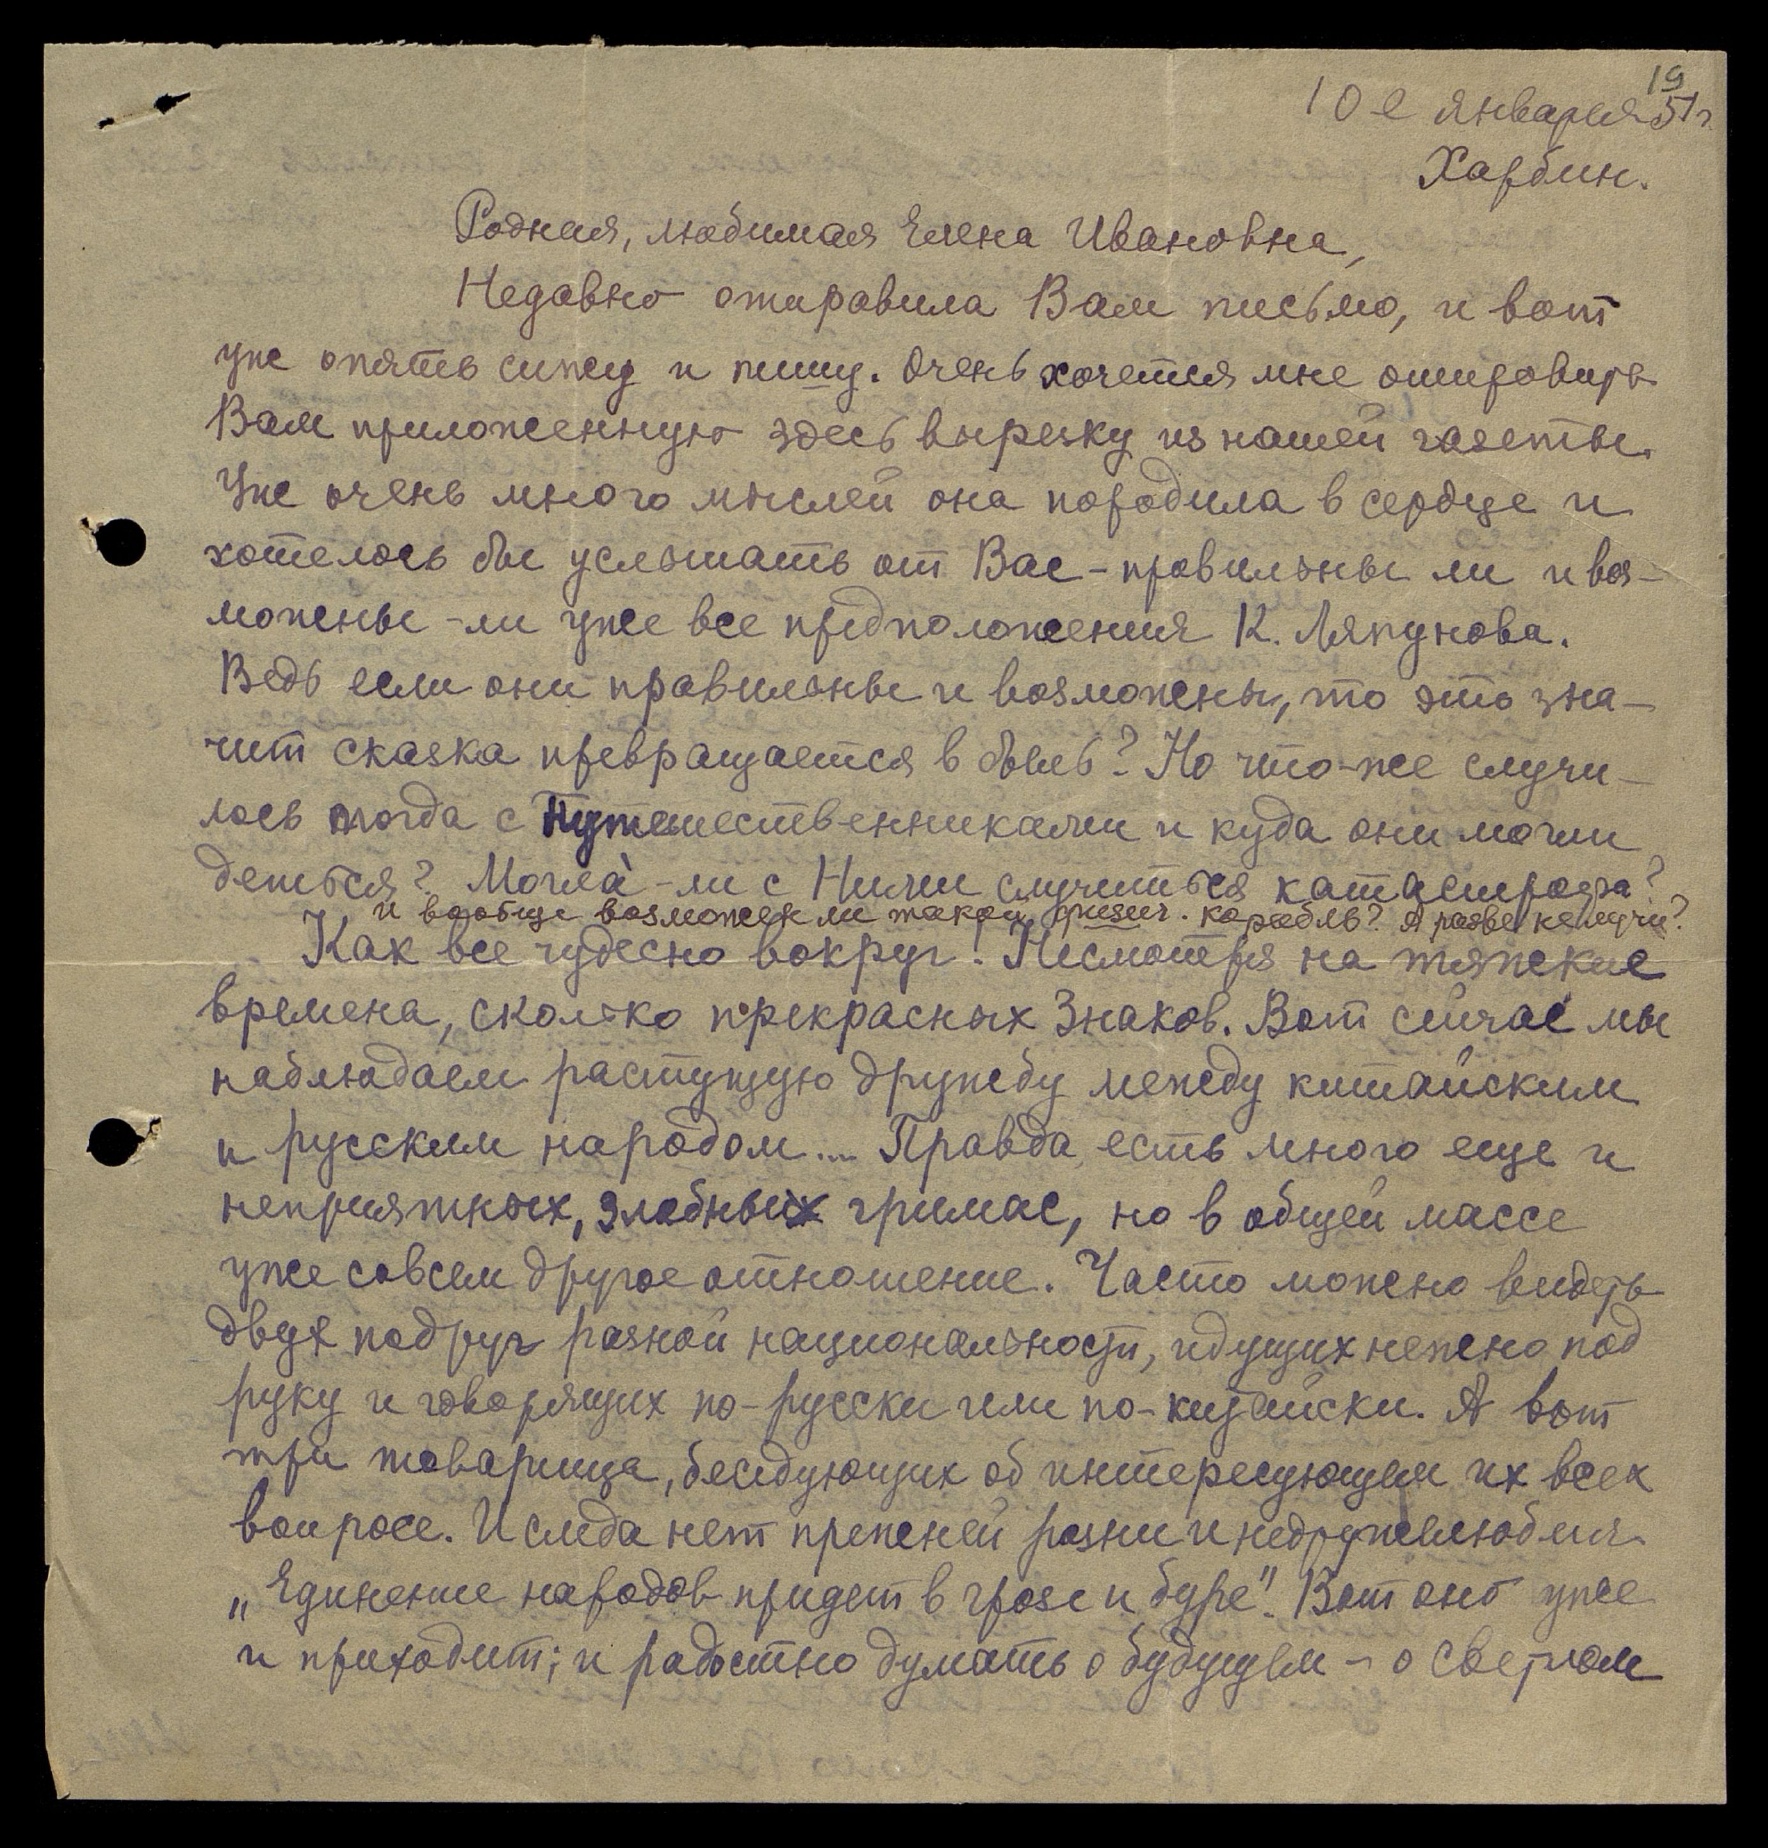 10 е января 1951 г.
Харбин.
Родная, любимая Елена Ивановна,
Недавно отправила Вам письмо, и вот
уже опять сижу и пишу. Очень хочется мне отправить
Вам приложенную здесь вырезку из нашей газеты.
Уже очень много мыслей она породила в сердце и
хотелось бы услышать от Вас - правильны ли и воз-
можны-ли уже все предположения К. Ляпунова.
Ведь если они правильны и возможны, то это зна-
чит сказка превращается в быль? Но что-же случи-
лось тогда с Путешественниками и куда они могли
деться? Могла̀-ли с Ними случиться катастрофа?
и вообще возможен ли такой физич. корабль? А разве не лучи?
Как все чудесно вокруг! Несмотря на тяжкие
времена, сколько прекрасных Знаков. Вот сейчас мы
наблюдаем растущую дружбу между китайским
и русским народом.... Правда, есть много еще и
неприятных, злобных гримас, но в общей массе
уже совсем другое отношение. Часто можно видеть
двух подруг разной национальности, идущих нежно под
руку и говорящих по-русски или по-китайски. А вот
три товарища, беседующих об интересующем их всех
вопросе. И следа нет прежней розни и недружелюбия.
„Единение народов придет в грозе и буре". Вот оно уже
и приходит; и радостно думать о будущем - о светлом